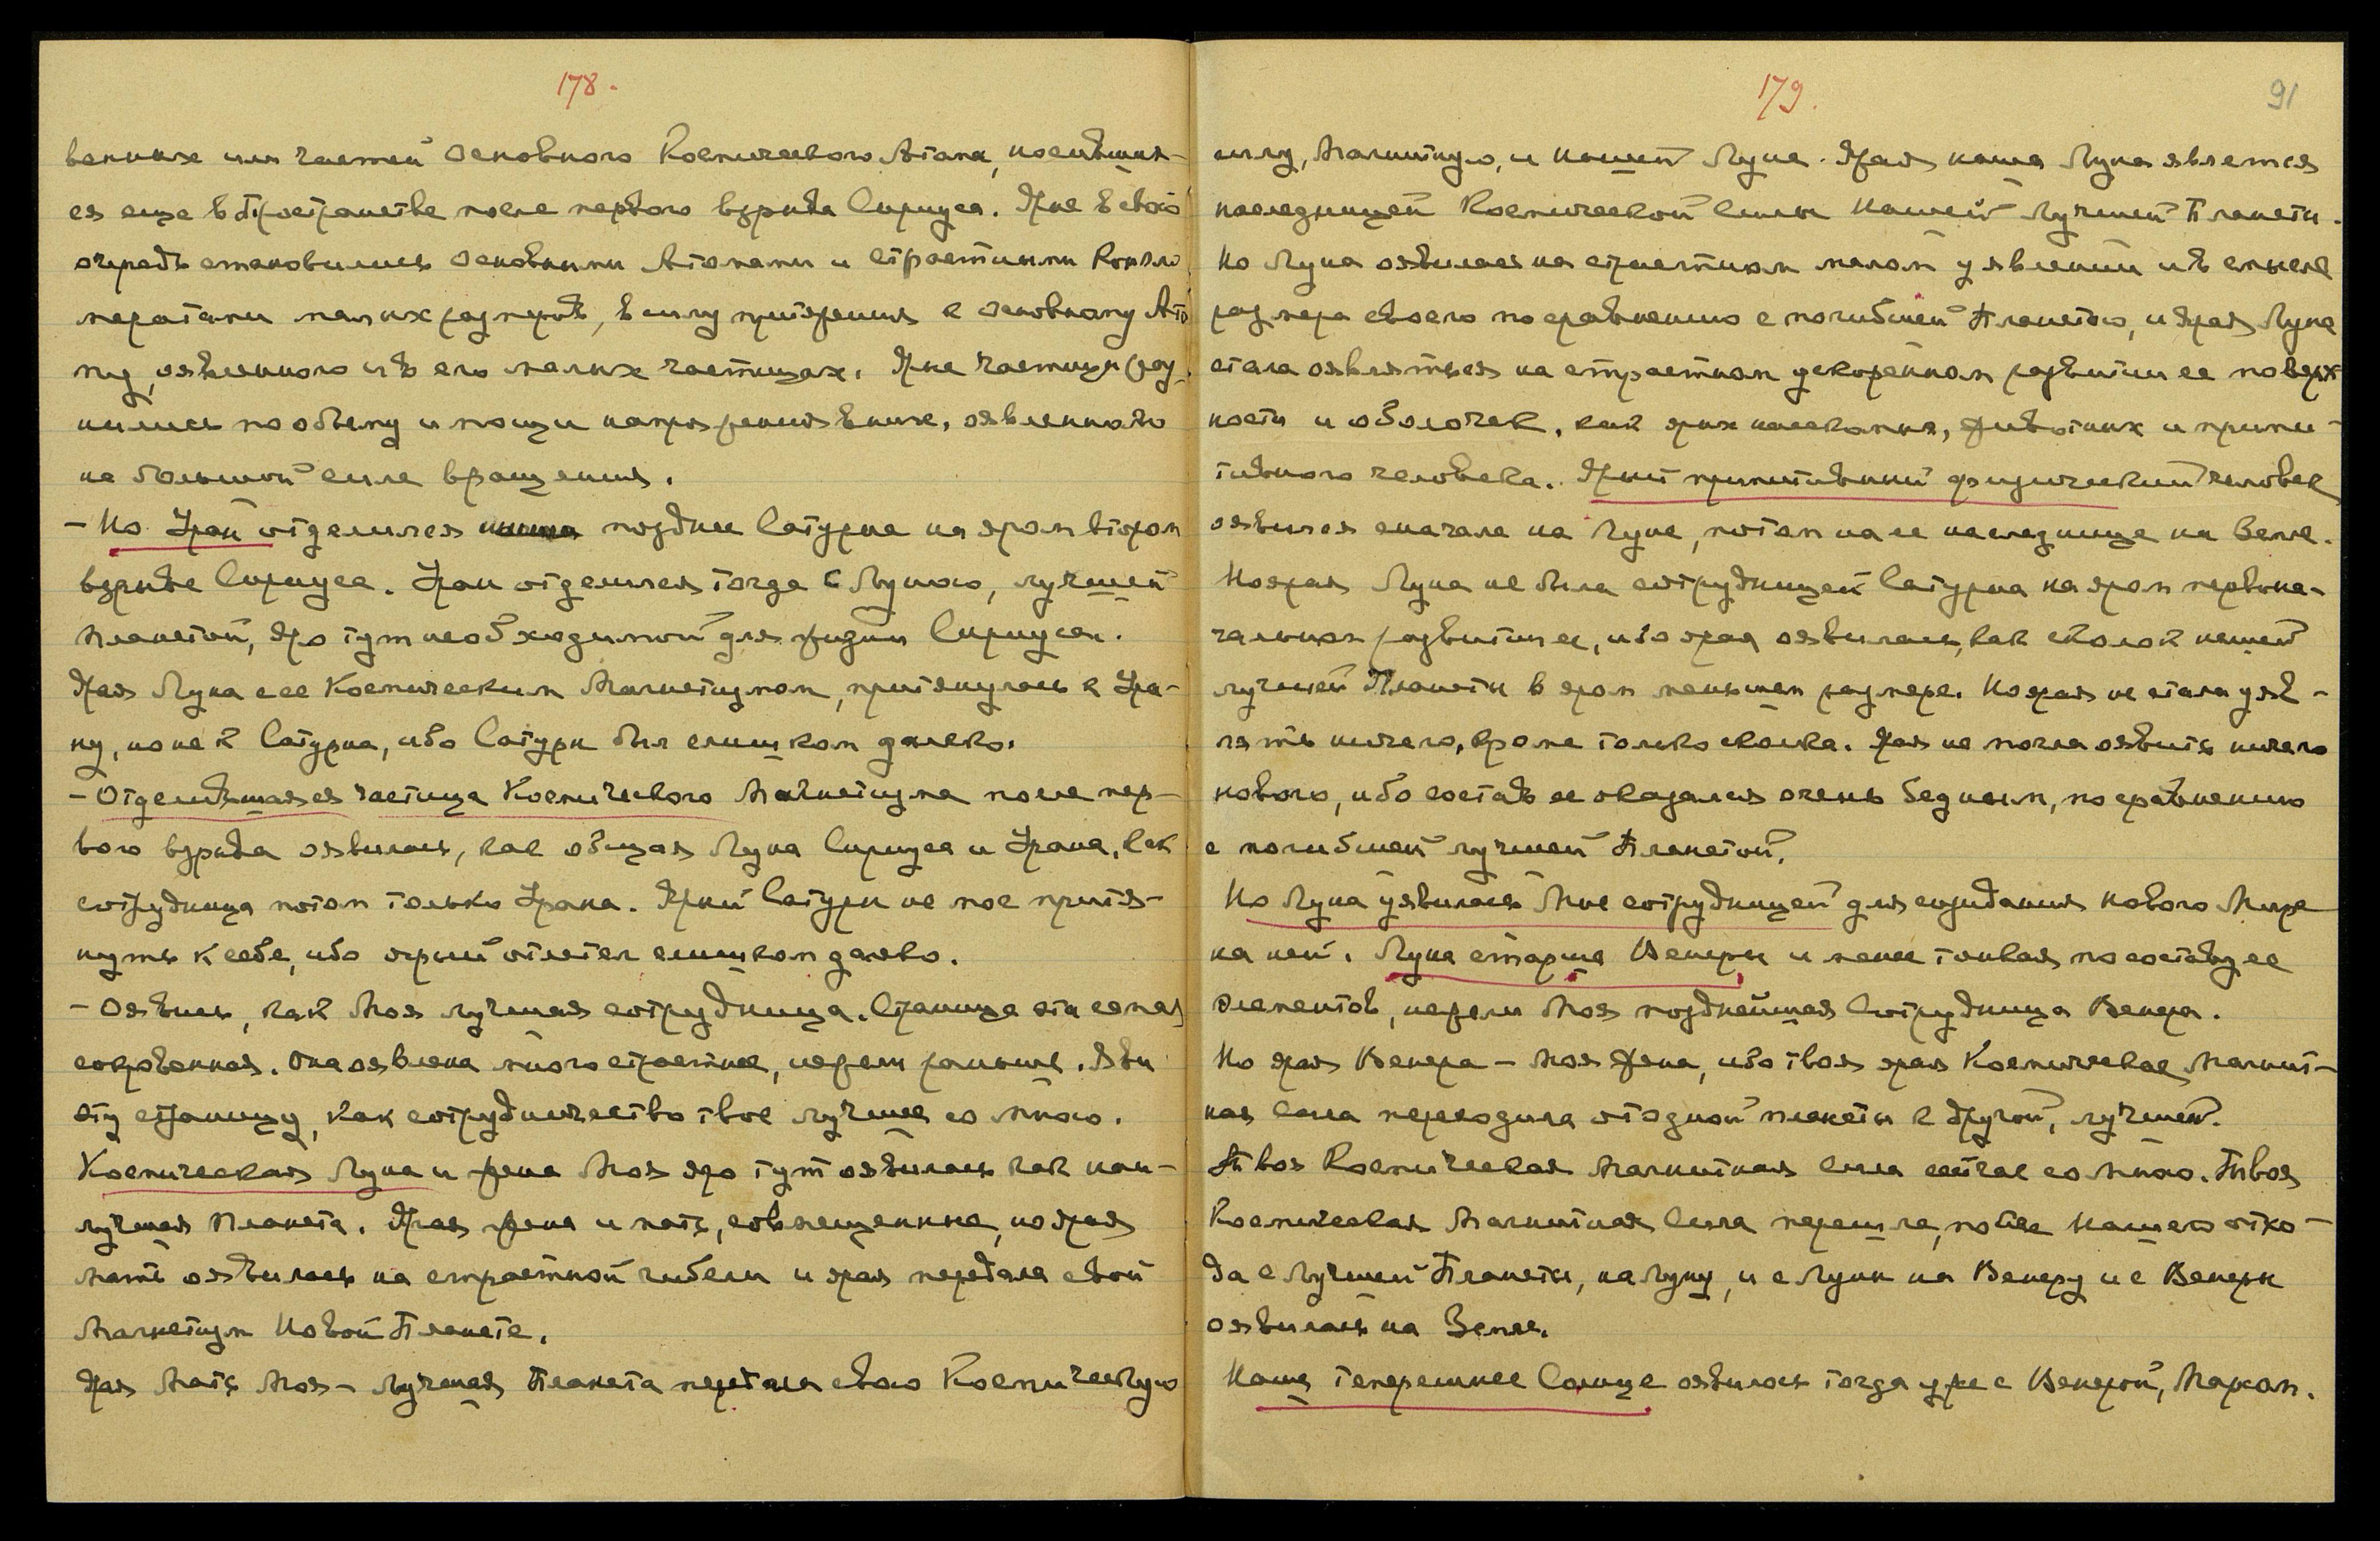 178.
венных или частей Основного Космического Атома, носивших-
ся еще в Пространстве после первого взрыва Сириуса. Ярые в свою
очередь становились Основными Атомами и страстными Конгло
мератами малых размеров, в силу притяжения к основному Ато
му, оявленного и в его малых частицах. Ярые частицы раз-
нились по объему и мощи напряжения в них, оявленного
на большой силе вращения.
- Но Уран отделился позднее Сатурна на яром втором
взрыве Сириуса. Уран отделился тогда с Луною, лучшей
планетой, яро тут необходимой для жизни Сириуса.
Ярая Луна с ее Космическим Магнетизмом, притянулась к Ура-
ну, но не к Сатурна, ибо Сатурн был слишком далеко.
- Отделившаяся частица Космического Магнетизма после пер-
вого взрыва оявилась, как общая Луна Сириуса и Урана, как
сотрудница потом только Урана. Ярый Сатурн не мог притя-
нуть к себе, ибо ярый отлетел слишком далеко.
- Оявись, как Моя лучшая сотрудница. Страница эта самая
сокровенная. Она оявлена много страстнее, нежели раньше. Яви
эту страницу, как сотрудничество твое лучшее со Мною.
Космическая Луна и жена Моя яро тут оявилась как наи-
лучшая Планета. Ярая жена и мать, совмещенные, но ярая
мать оявилась на страстной гибели и ярая передала свой
Магнетизм Новой Планете.
Ярая Мать Моя - Лучшая Планета передала свою Космическую
179.
91
силу, Магнитную, и нашей Луне. Ярая наша Луна является
наследницей Космической Силы Нашей Лучшей Планеты.
Но Луна оявилась на страстном малом уявлении и в смысле
размера своего по сравнению с погибшей Планетою, и ярая Луна
стала оявляться на страстном ускоренном развитии ее поверх
ности и оболочек, как ярых насекомых, животных и прими-
тивного человека. Ярый примитивный физический человек
оявился сначала на Луне, потом на ее наследнице на Земле.
Но ярая Луна не была сотрудницей Сатурна на яром первона-
чальном развитии ее, ибо ярая оявилась, как сколок нашей
лучшей Планеты в яром меньшем размере. Но ярая не стала уяв-
лять ничего, кроме только сколка. Ярая не могла оявить ничего
нового, ибо состав ее оказался очень бедным, по сравнению
с погибшей лучшей Планетой.
Но Луна уявилась Мне сотрудницей для создания нового Мира
на ней. Луна старше Венеры и менее тонкая по составу ее
элементов, нежели Моя позднейшая Сотрудница Венера.
Но ярая Венера - Моя Жена, ибо твоя ярая Космическая Магнит-
ная Сила переходила от одной планеты к другой, лучшей.
Твоя Космическая Магнитная сила сейчас со Мною. Твоя
Космическая Магнитная Сила перешла, после Нашего отхо-
да с Лучшей Планеты, на Луну, и с Луны на Венеру и с Венеры
оявилась на Земле.
Наше теперешнее Солнце оявилось тогда уже с Венерой, Марсом.